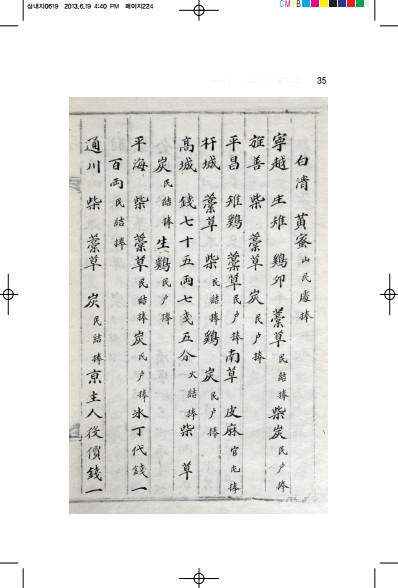 삼내지0619 2013.6.19 4:40 PM 페이지224
CM
35
白淸 黃蜜山民處捧
寧越 生雉 鷄卵 藁草民結捧柴炭民戶捧
旌善 柴 藁草 炭民戶捧
平昌 雉鷄 藁草民戶捧南草 皮麻官屯捧
杆城 藁草 柴民結捧鷄 炭民戶捧
高城 錢七十五兩七戔五分火結捧柴 草
炭民結捧生鷄民戶捧
平海 柴 藁草民結捧炭民戶捧氷丁代錢一
百兩民結捧
通川 柴 藁草 炭民結捧京主人役價錢一